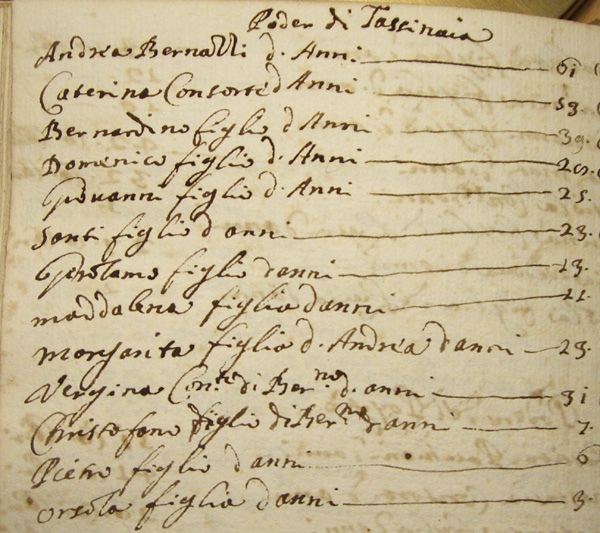 Poder di Tassinaia
Andrea Bernalli d. Anni 61
Caterina Consorte d Anni 53
Bernardino figlio d Anni 39.
Domenico figlio d. Anni
Giovanni figlio d. Anni 25.
Santi figlio d anni 23.
Girolamo figlio d anni 13.
Maddalena figlia d anni 11
Margarita figlia d. Andrea d anni 23.
Vergina Con.te di Ber.no d. anni 31
Christofano figlio di Ber.no d anni 7.
Pietro figlio d anni 6
Orsola figlia d anni 3.